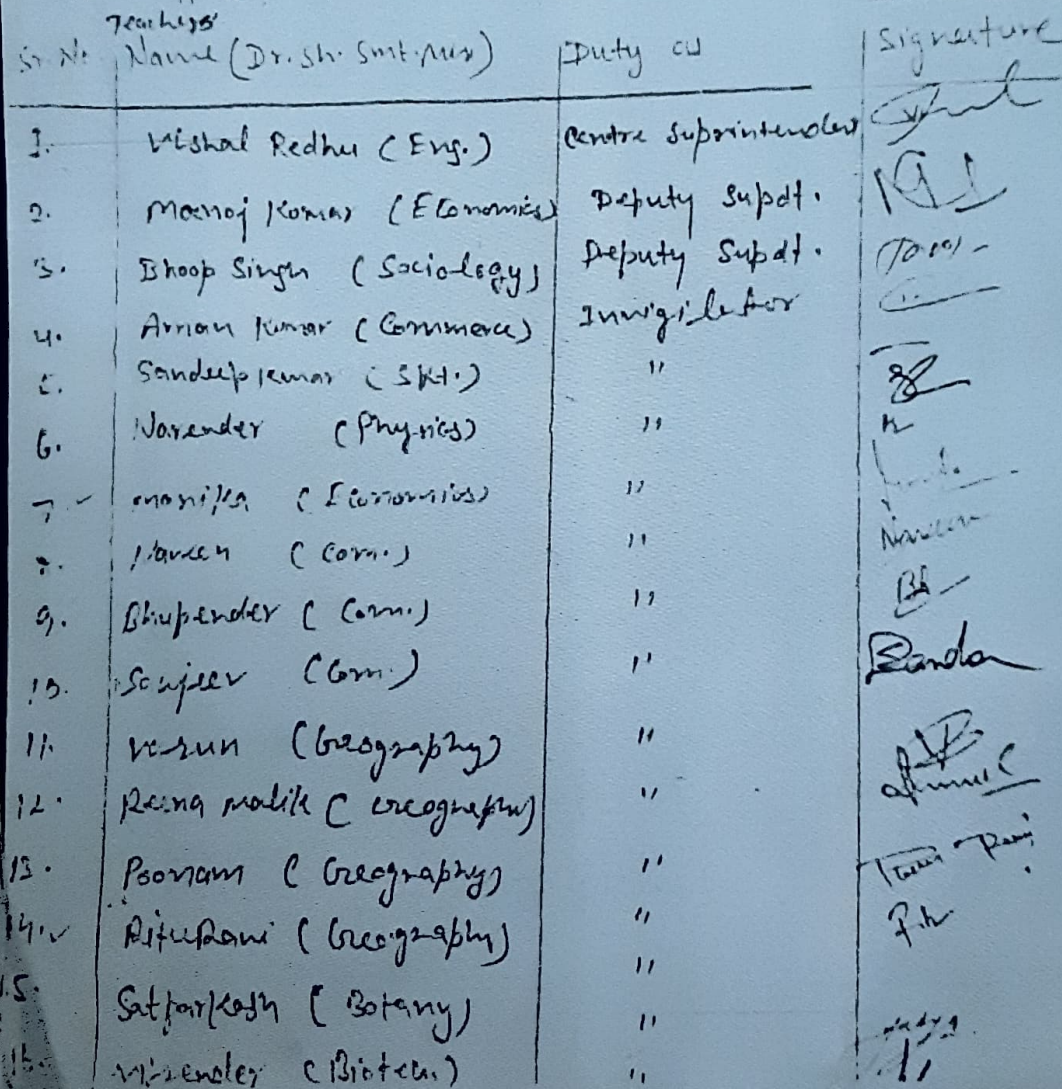 Teachers'
Sr. No. Name (Dr. Sh. Smt. Mrs) Duty as Signature
1. Vishal Redhu (Eng.) Centre Suprintendent
2. Manoj Kumar (Economics) Deputy Supdt.
3. Bhoop Singh (Sociology) Deputy Supdt.
4. Arman Kumar (Commerce) Invigilator
5. Sandeep Kumar (Skt.) "
6. Narender (Physics) "
7. Monika (Economics) "
8. Naveen (Com.) " Naveen
9. Bhupender (Com.) "
10. Sanjeev (Com.) "
11. Varun (Geography) "
12. Reena Malik (Geography) "
13. Poonam (Geography) "
14. Ritu Rani (Geography) "
15. Satparkash (Botany) "
16. Virender (Biotech.) "